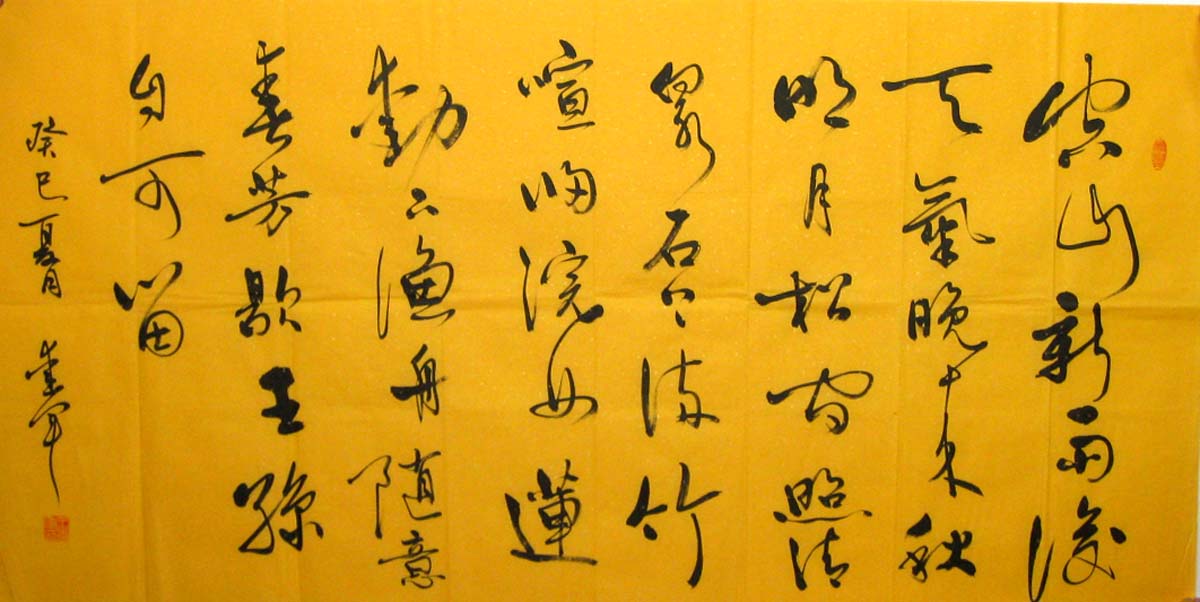 空山新雨後
天氣晚来秋
明月松间照清
泉石上流竹
喧归浣女蓮
動下漁舟随意
春芳歇王孫
自可留
癸巳夏月